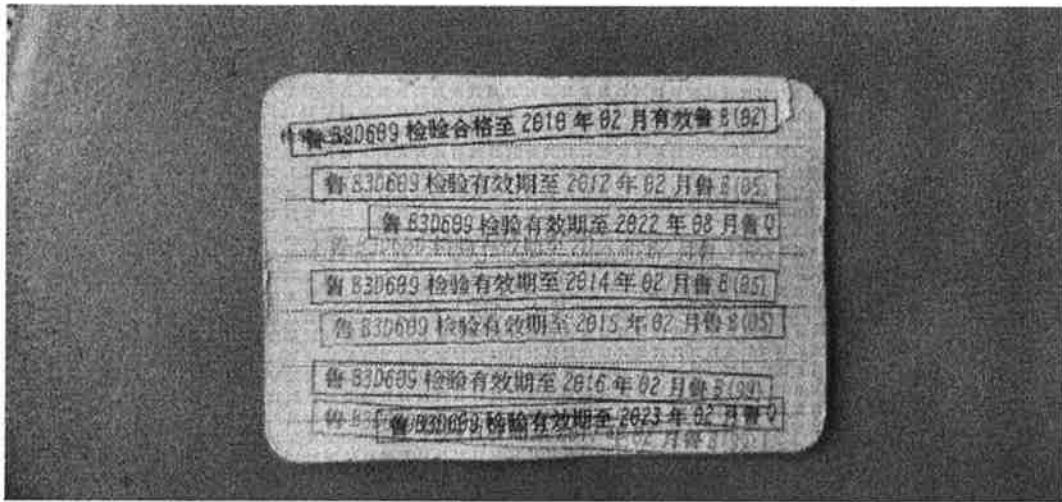 鲁 B3D609 检验合格至 2010 年 02 月有效鲁 B(02)
鲁 B3D609 检验有效期至 2012 年 02 月鲁 B(05)
鲁 B3D609 检验有效期至 2022 年 08 月鲁 Q
鲁 B3D609 检验有效期至 2014 年 02 月鲁 B(05)
鲁 B3D609 检验有效期至 2015 年 02 月鲁 B(05)
鲁 B3D609 检验有效期至 2016 年 02 月鲁 B(99)
鲁 B3D609 检验有效期至 2023 年 02 月鲁 Q